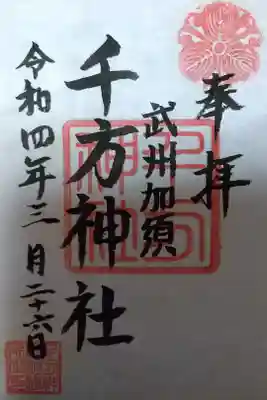 奉拝
武州加須
千方神社
令和四年三月二十六日